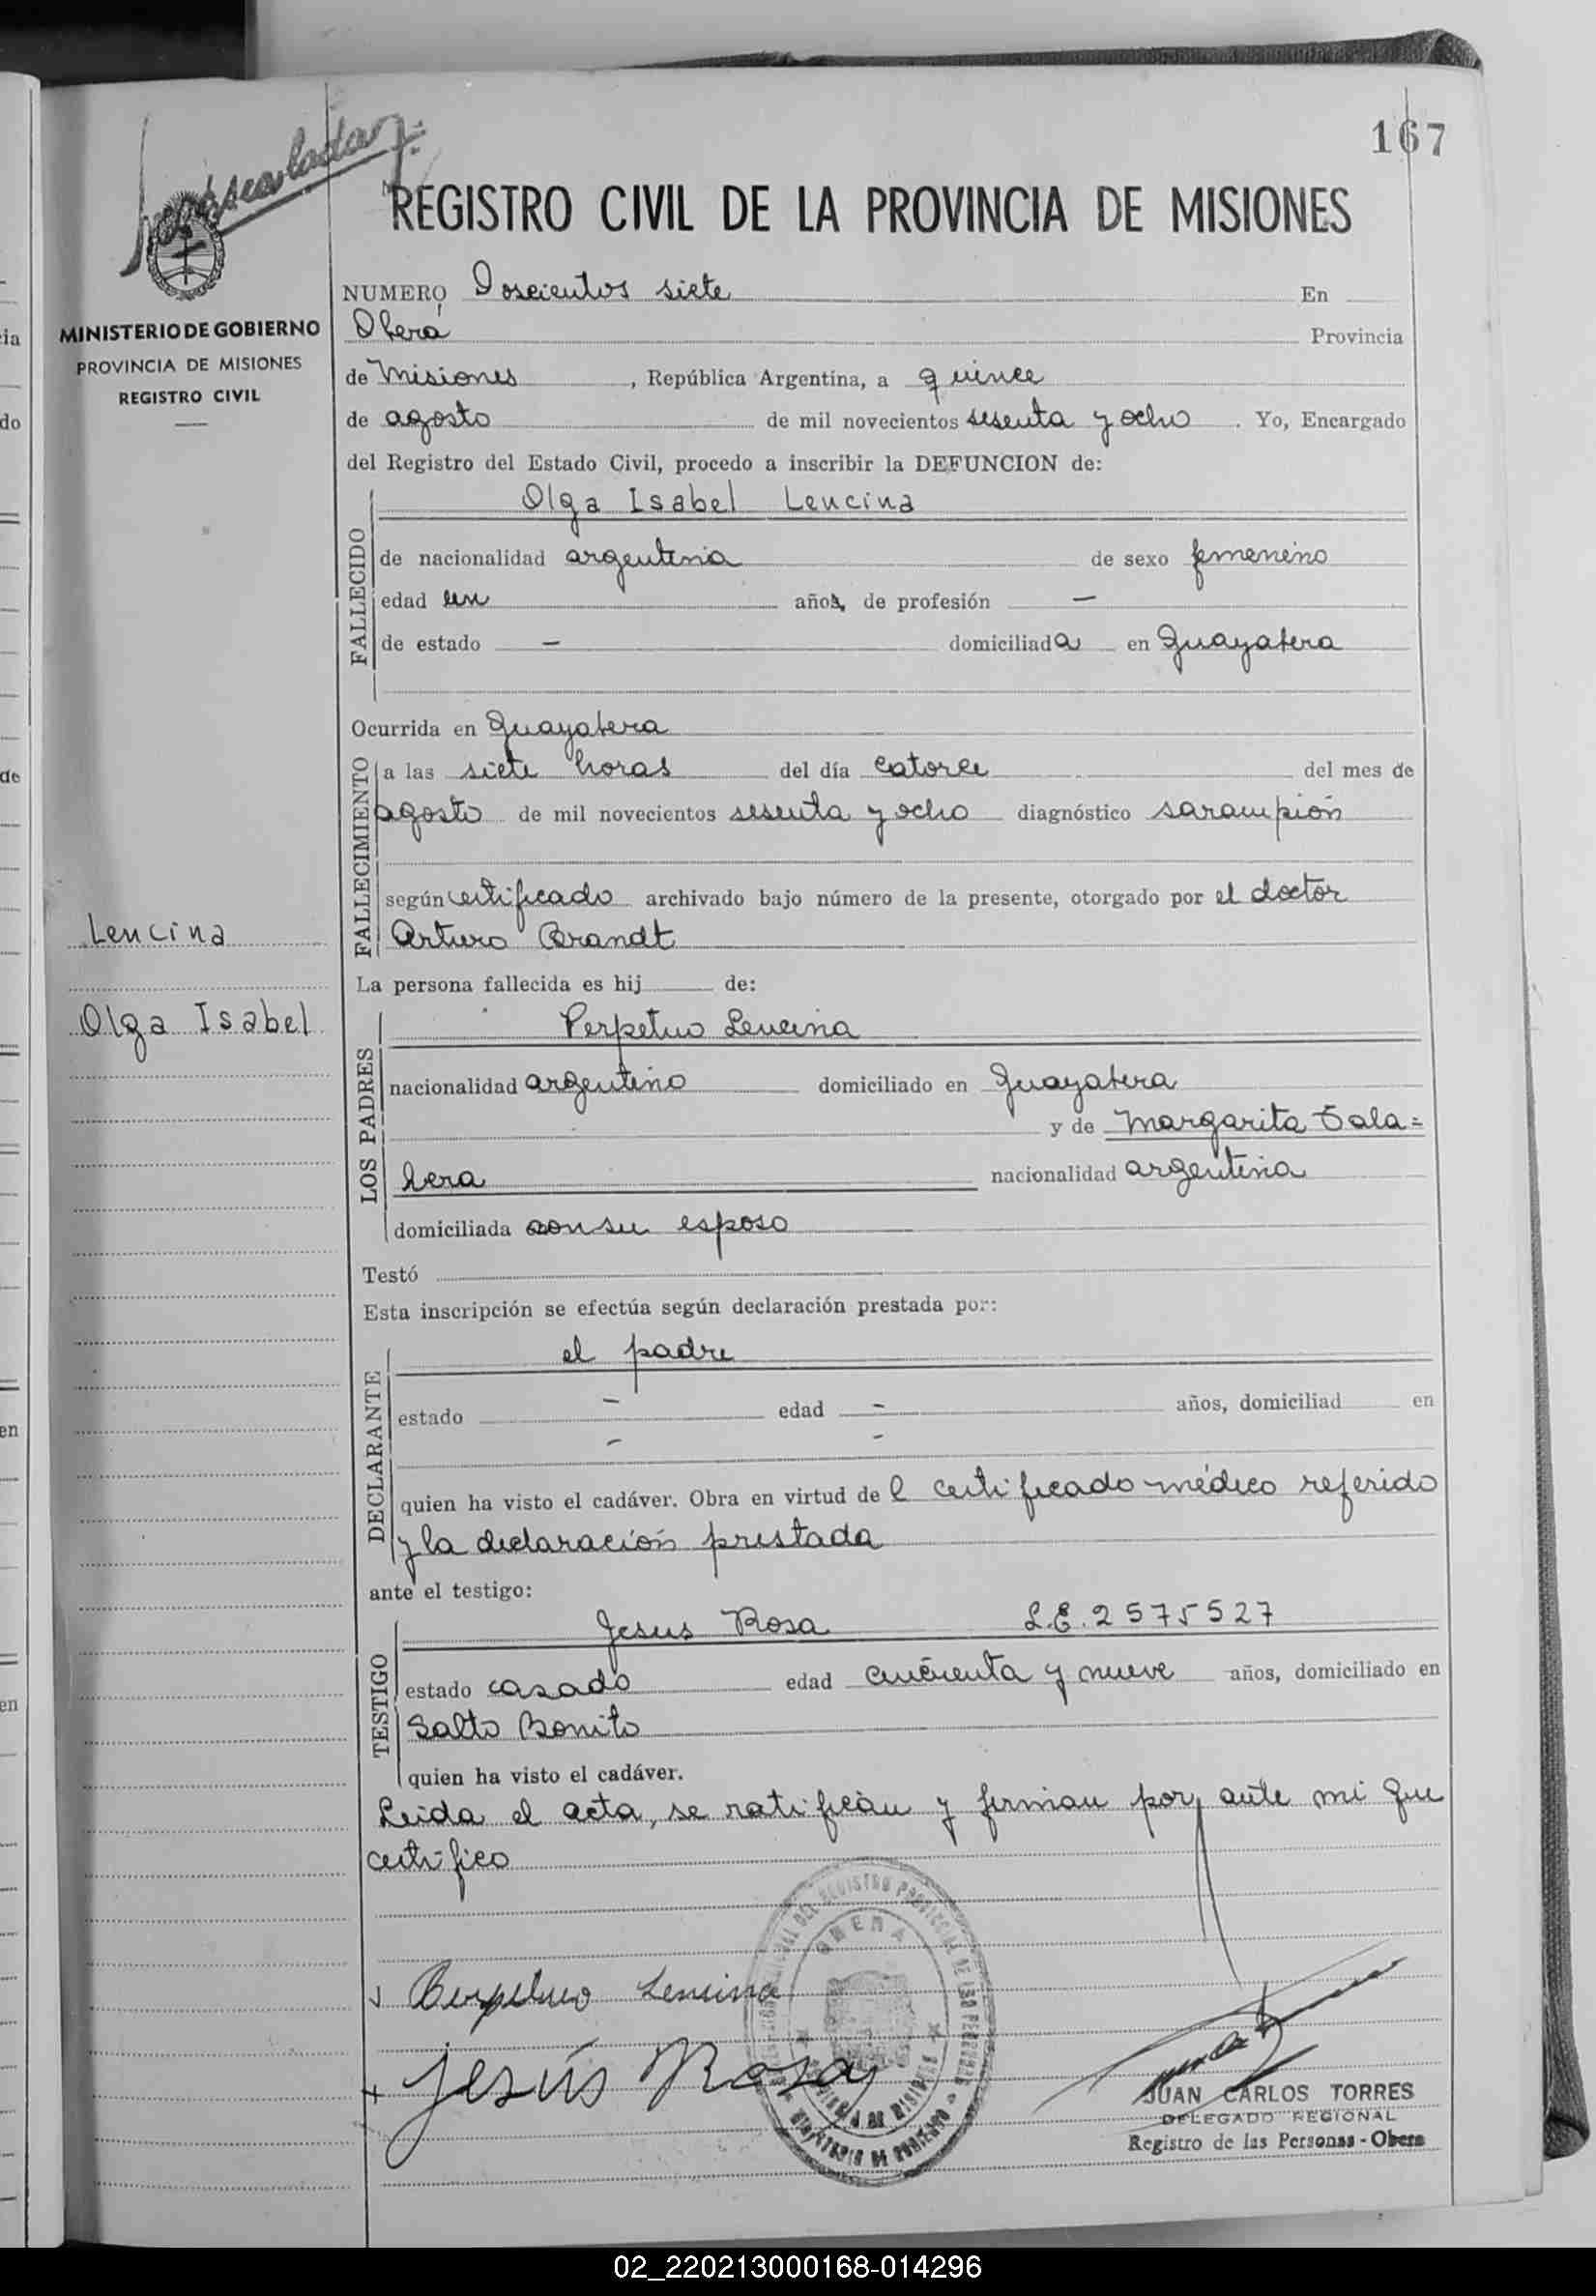 167
REGISTRO CIVIL DE LA PROVINCIA DE MISIONES
MINISTERIO DE GOBIERNO
PROVINCIA DE MISIONES
REGISTRO CIVIL
Lencina
Olga Isabel
NUMERO Doscientos siete En
Oberá Provincia
de Misiones, República Argentina, a quince
de agosto de mil novecientos sesenta y ocho. Yo, Encargado
del Registro del Estado Civil, procedo a inscribir la DEFUNCION de:
FALLECIDO
Olga Isabel Lencina
de nacionalidad argentina de sexo femenino
edad un años, de profesión —
de estado — domiciliada en Guayabera
Ocurrida en Guayabera
FALLECIMIENTO
a las siete horas del día catorce del mes de
agosto de mil novecientos sesenta y ocho diagnóstico sarampión
según certificado archivado bajo número de la presente, otorgado por el doctor
Arturo Brandt
La persona fallecida es hij de:
LOS PADRES
Perpetuo Lencina
nacionalidad argentino domiciliado en Guayabera
y de Margarita Tala=
bera nacionalidad argentina
domiciliada con su esposo
Testó
Esta inscripción se efectúa según declaración prestada por:
DECLARANTE
el padre
estado — edad — años, domiciliad en
— —
quien ha visto el cadáver. Obra en virtud de l certificado médico referido
y la declaración prestada
ante el testigo:
TESTIGO
Jesus Rosa L.E. 2575527
estado casado edad cincuenta y nueve años, domiciliado en
Salto Bonito
quien ha visto el cadáver.
Leida el acta, se ratifican y firman por ante mi que
certifico
Perpetuo Lencina
Jesús Rosa
OBERA
JUAN CARLOS TORRES
DELEGADO REGIONAL
Registro de las Personas - Obera
02_220213000168-014296